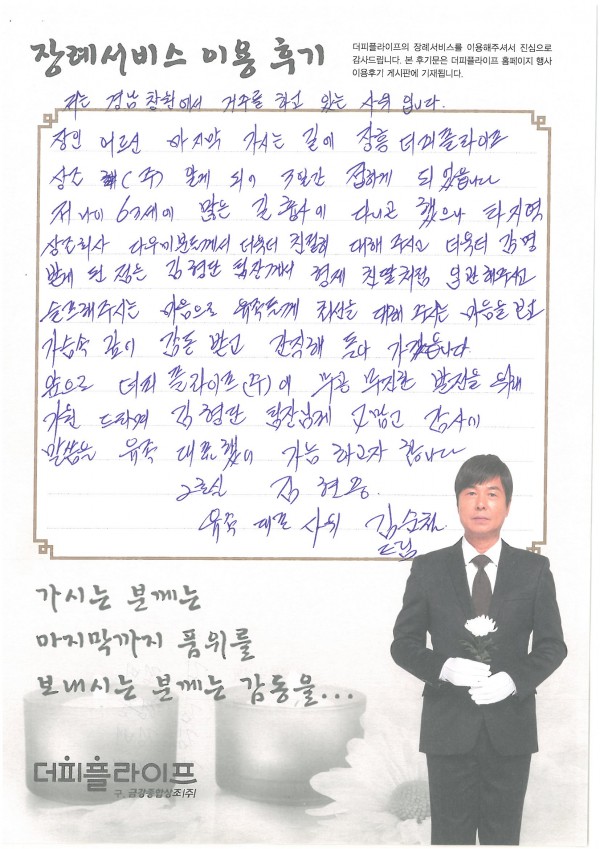 장례서비스 이용 후기
더피플라이프의 장례서비스를 이용해주셔서 진심으로
감사드립니다. 본 후기문은 더피플라이프 홈페이지 행사
이용후기 게시판에 기재됩니다.
저는 경남 창원에서 거주를 하고 있는 사위 입니다.
장인 어르신 마지막 가시는 길에 장흥 더피플라이프
상조 (주) 알게 되어 3일간 접하게 되었습니다
저 나이 63세에 많은 길 다니곤 했으나 타지역
상조회사 다우미분들께서 더욱더 친절히 대해 주시고 더욱더 감명
받게 된 점은 김형단 팀장님께서 형제 친딸처럼 해주시고
슬퍼해주시는 마음으로 유족들께 최선을 대해 주시는 마음을 보고
가슴속 깊이 감동 받고 간직해 듭다 가겠습니다.
앞으로 더피플라이프(주)에 무궁 무진한 발전을 위해
기원 드리며 김형단 팀장님께 고맙고 감사의
말씀을 유족 대표 가늠 하고자 합니다
고인 김
유족 대표 사위 김순천
드림
가시는 분께는
마지막까지 품위를
보내시는 분께는 감동을...
더피플라이프
구. 금강종합상조(주)